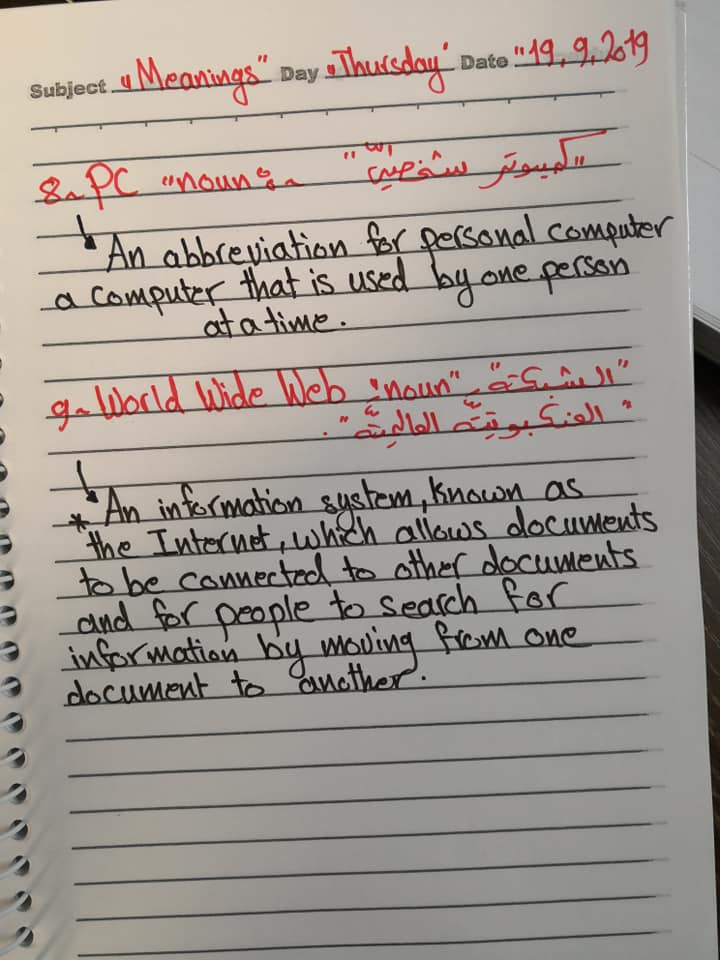 Subject "Meanings" Day "Thursday" Date "19, 9, 2019
8- PC "noun": - "كمبيوتر شخصيّ"
An abbreviation for personal computer
a computer that is used by one person
at a time.
9- World Wide Web "noun": "الشبكة"
"العنكبوتيّة العالميّة".
* An information system, known as
the Internet, which allows documents
to be connected to other documents
and for people to search for
information by moving from one
document to another.